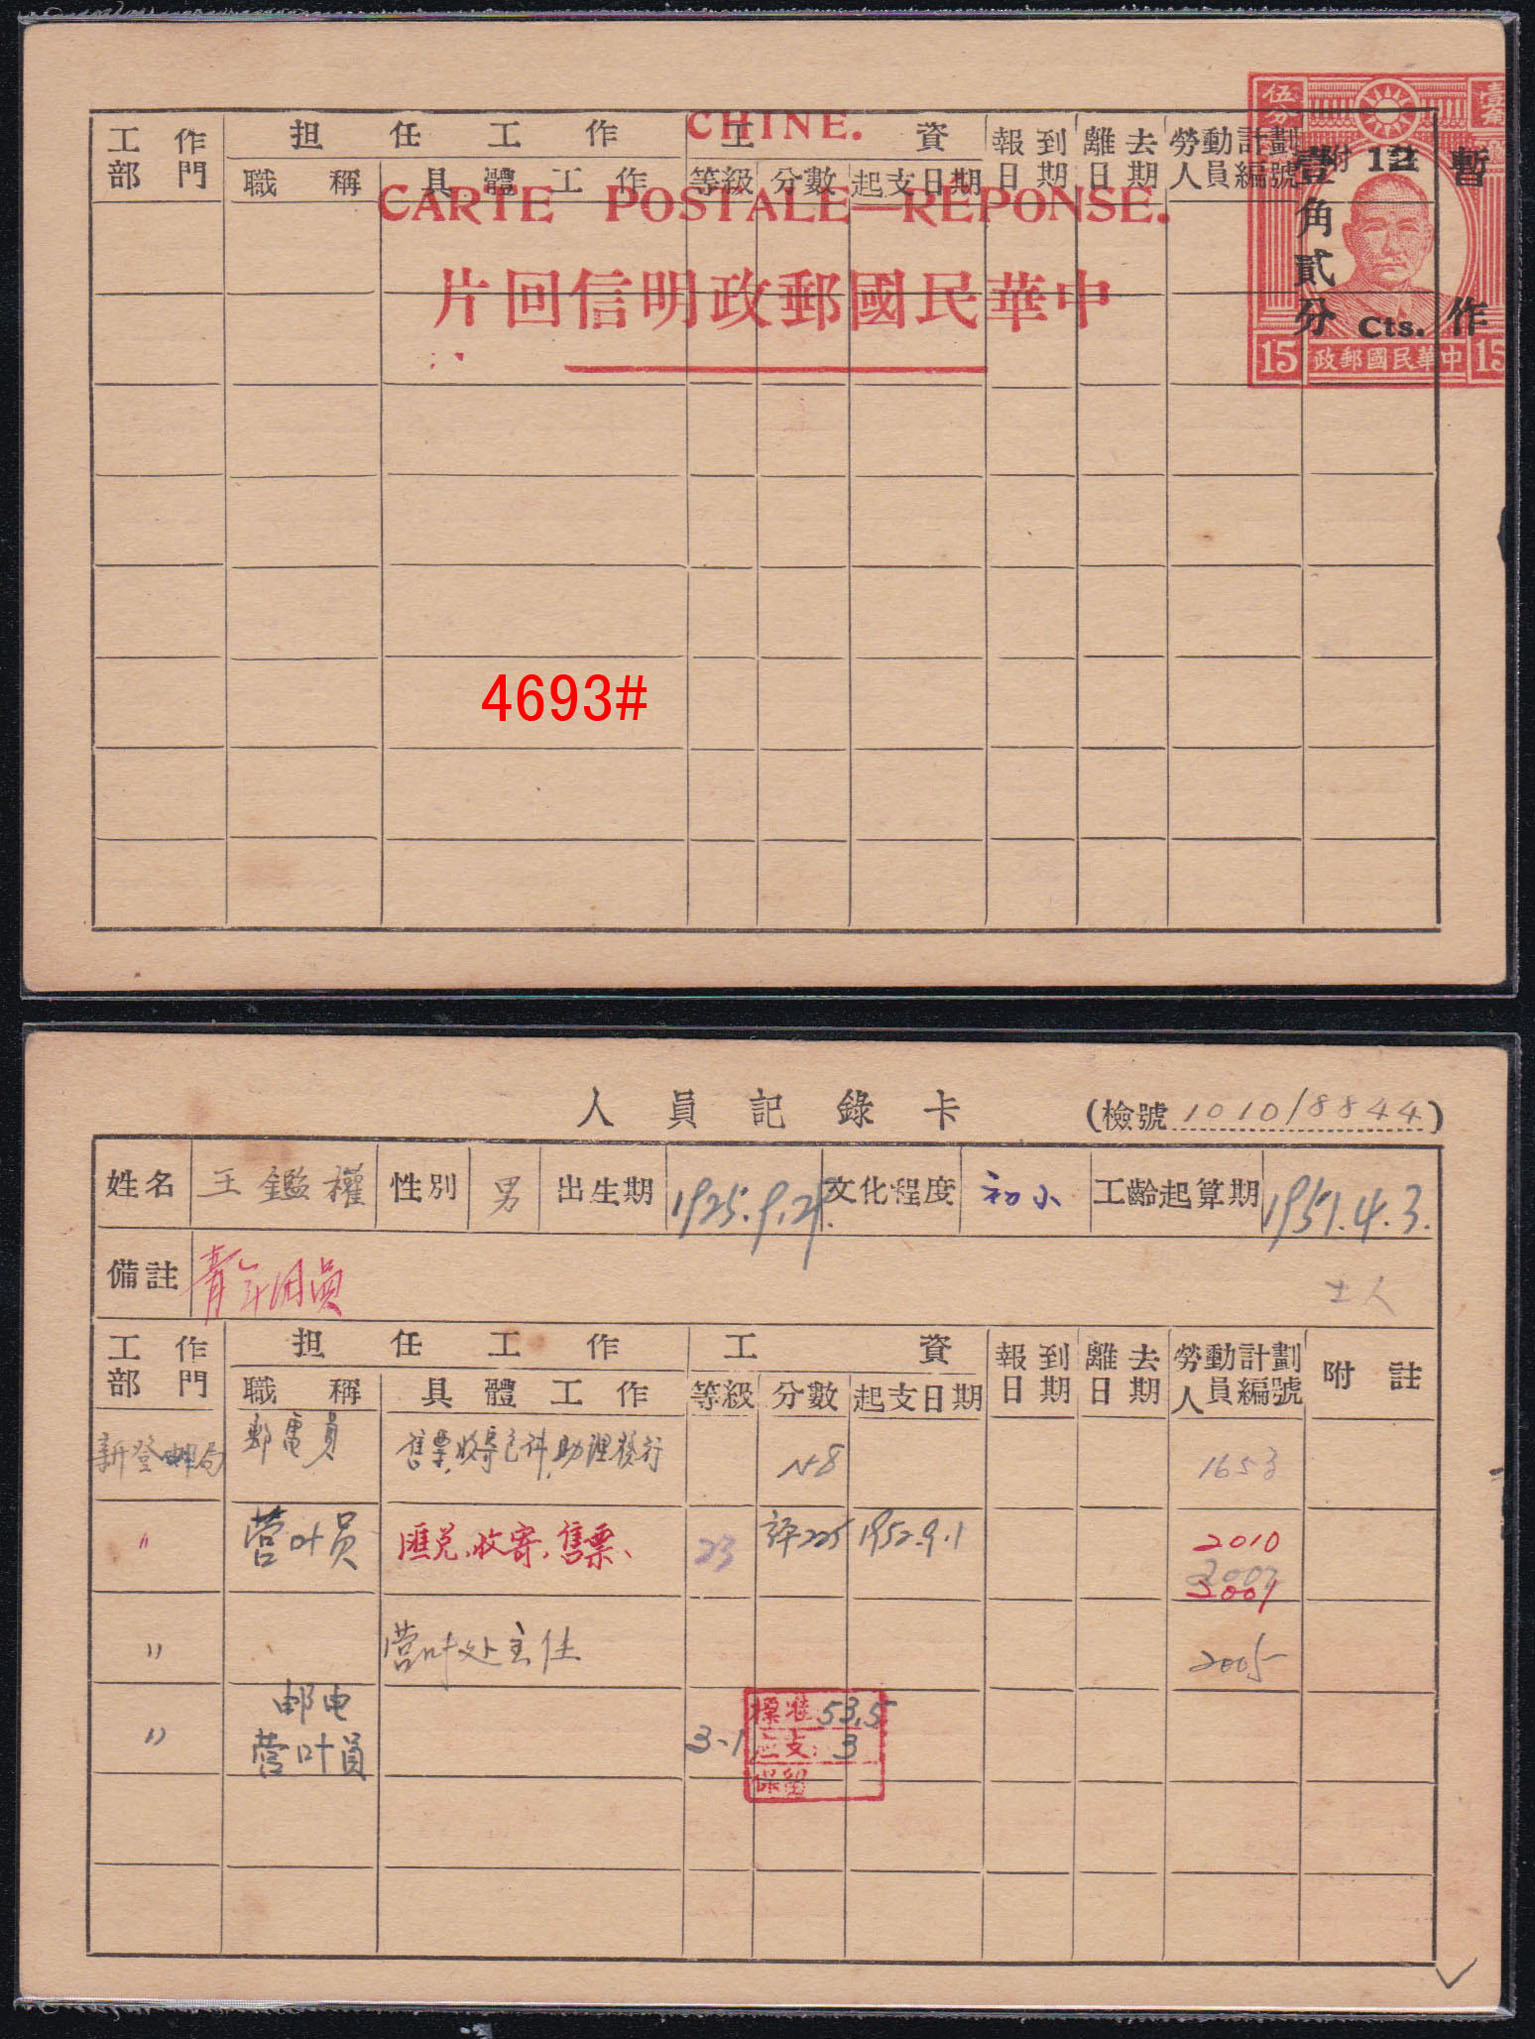 CHINE.
CARTE POSTALE—RÉPONSE.
中華民國郵政明信回片
伍分
壹角
暫作
壹角貳分
12
Cts.
15
中華民國郵政
15
工作部門
担任工作
工資
報到日期
離去日期
勞動計劃人員編號
附
職稱
具體工作
等級
分數
起支日期
4693#
人員記錄卡
(檢號 1010/8844)
姓名 王鑑權 性別 男 出生期 1925.9.29. 文化程度 初小 工齡起算期 1951.4.3.
備註 青年团員
工作部門
担任工作
工資
報到日期
離去日期
勞動計劃人員編號
附註
職稱
具體工作
等級
分數
起支日期
新登邮局 郵電員 售票,收寄包件,助理發行 N8 1653
〃 营叶员 匯兑、收寄、售票、 23 評225 1952.9.1 2010
3001
〃 营叶处主任 2005
〃 邮电营叶員 3-1
標准 53.5
应支: 3
保留